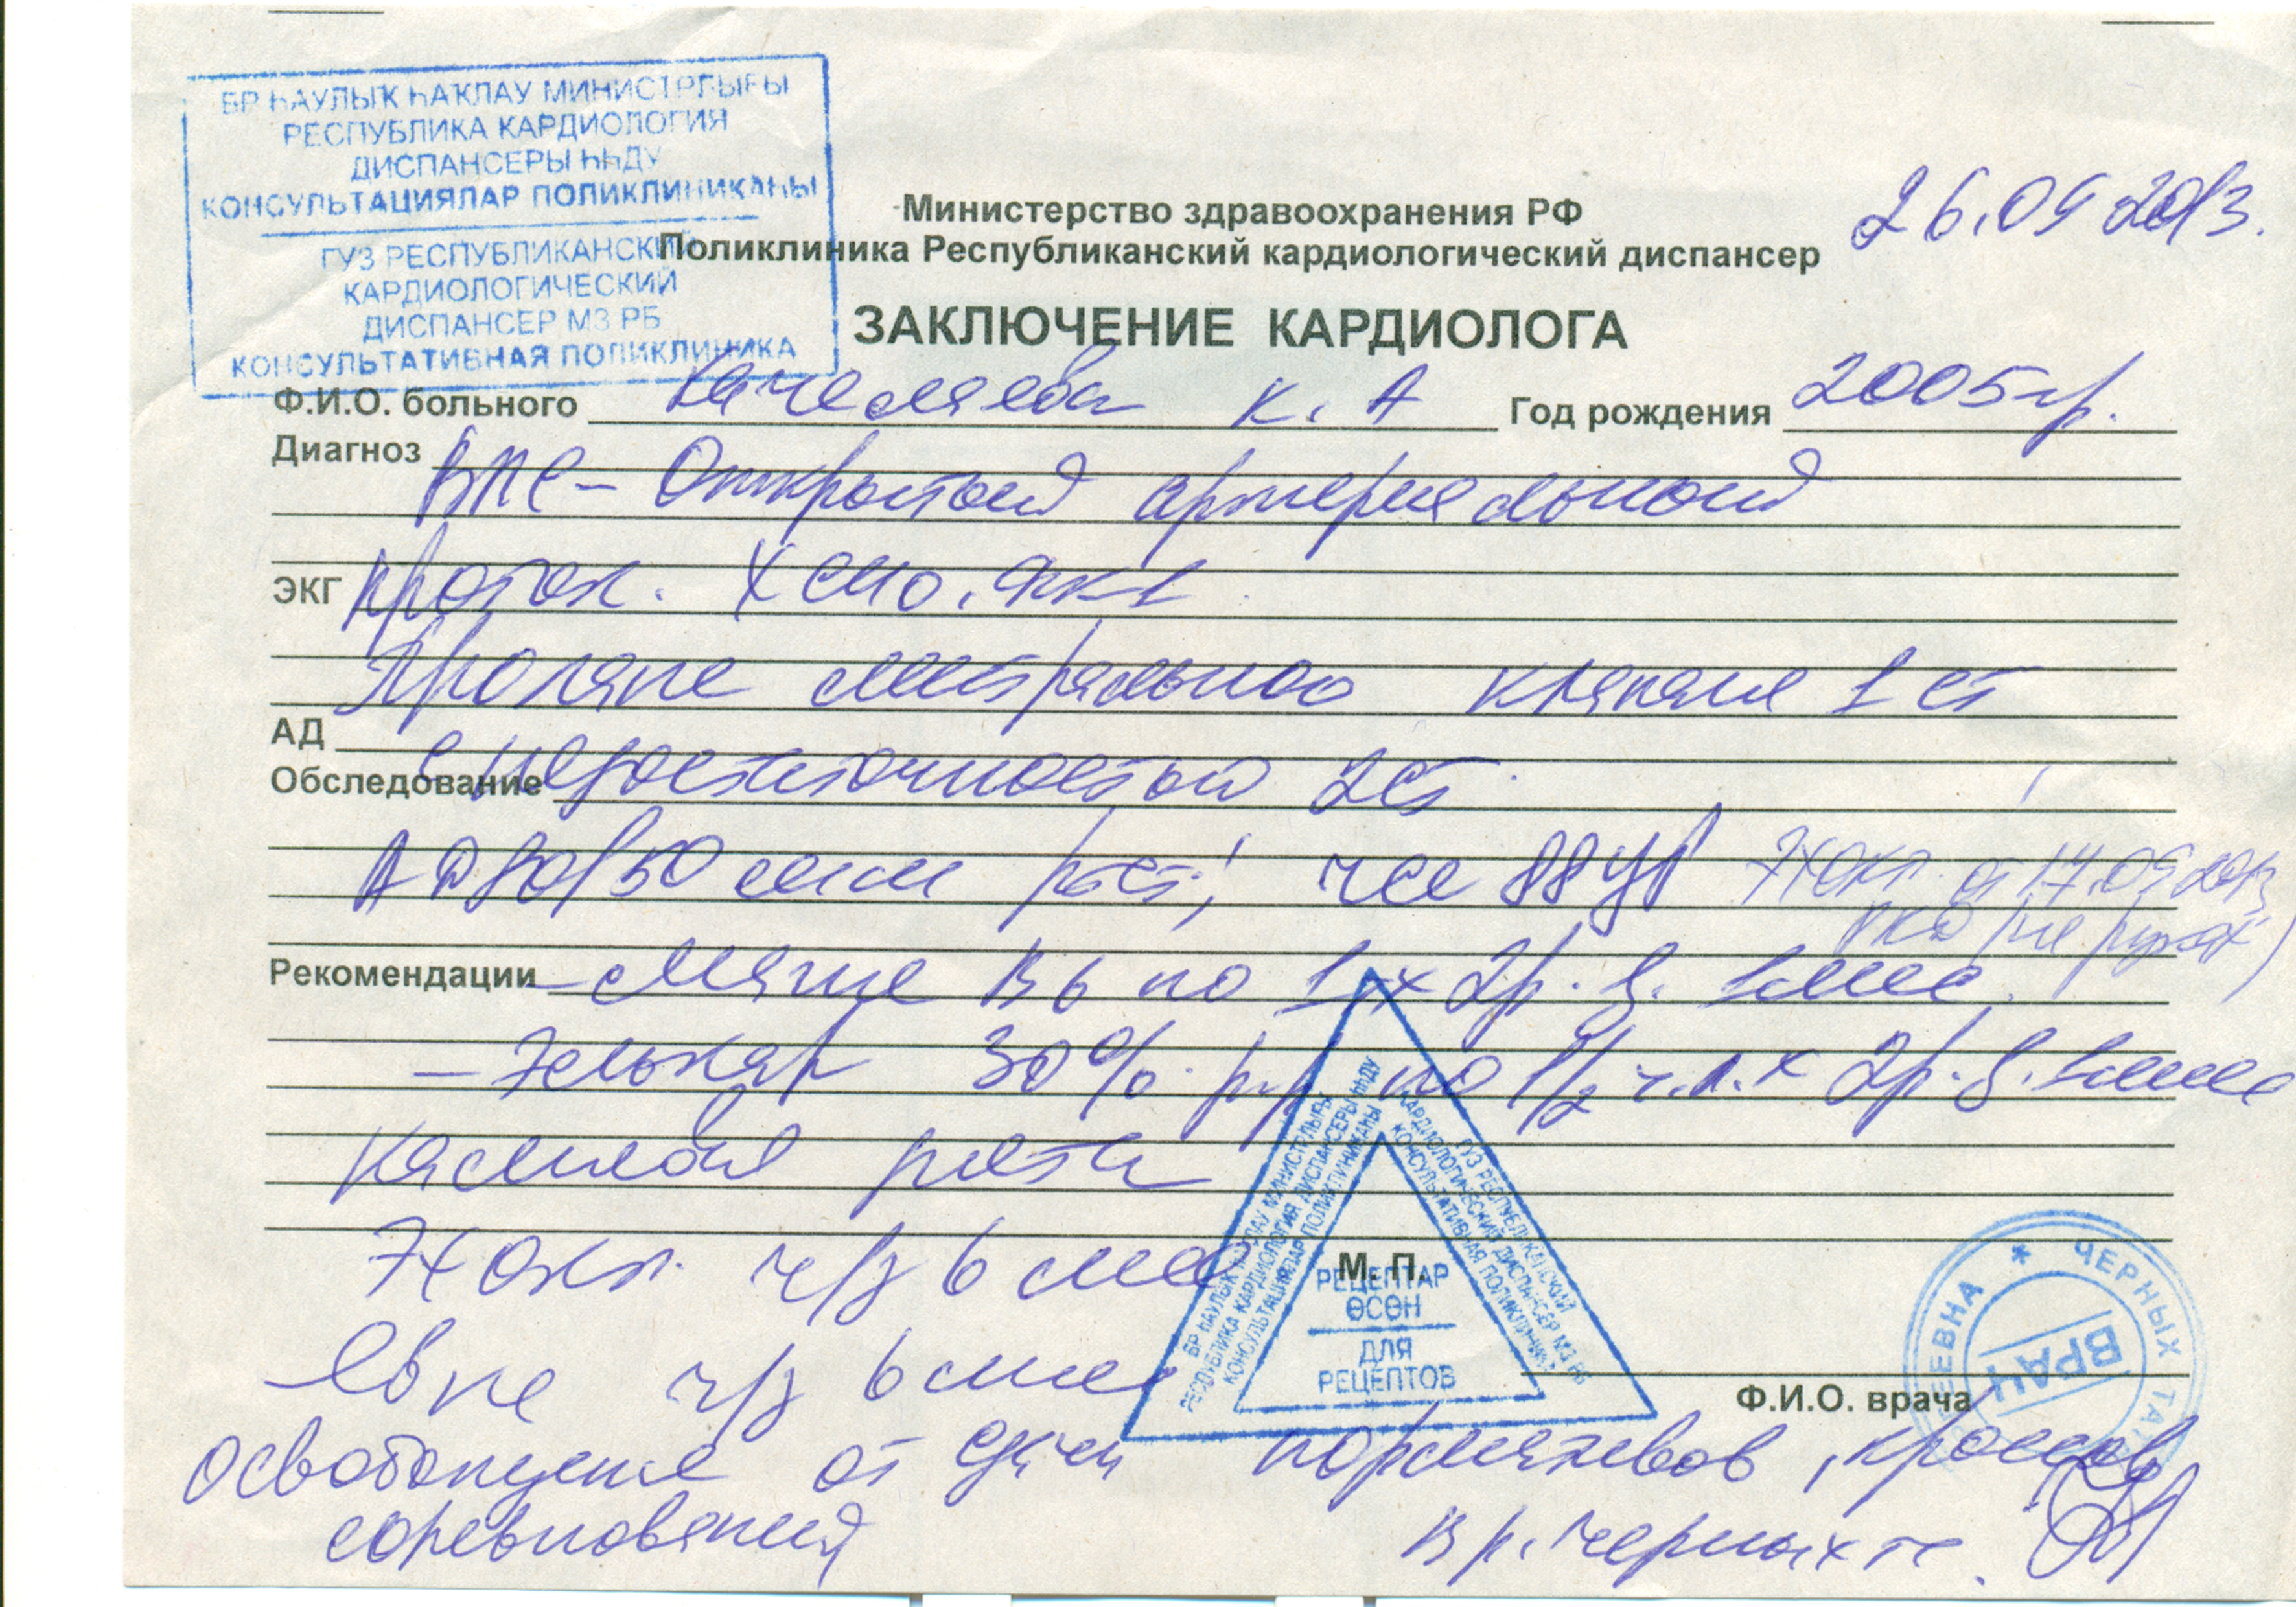 БР ҺАУЛЫҠ ҺАҠЛАУ МИНИСТРЛЫҒЫ
РЕСПУБЛИКА КАРДИОЛОГИЯ
ДИСПАНСЕРЫ ҺҺДУ
КОНСУЛЬТАЦИЯЛАР ПОЛИКЛИНИКАҺЫ
ГУЗ РЕСПУБЛИКАНСКИЙ
КАРДИОЛОГИЧЕСКИЙ
ДИСПАНСЕР МЗ РБ
КОНСУЛЬТАТИВНАЯ ПОЛИКЛИНИКА
26.09 2013.
Министерство здравоохранения РФ
Поликлиника Республиканский кардиологический диспансер
ЗАКЛЮЧЕНИЕ КАРДИОЛОГА
Ф.И.О. больного К. А Год рождения 2005 гр.
Диагноз ВПС - Открытый артериальный
ЭКГ проток. ФК1
Пролапс митрального клапана 1 ст
АД
с недостаточностью 2 ст.
Обследование
АД 80/50 мм рт ст; чсс 88 уд/ ЭХОКГ от 17.09 2013
Рекомендации - Магне В6 по 1 х 2 р. д. 1 мес.
- Элькар 30% р-р по 1/2 ч.л. х 2 р. д. 1 мес
ЭХОКГ ч/з 6 мес
Явка ч/з 6 мес
М. П.
РЕЦЕПТАР
ӨСӨН
ДЛЯ
РЕЦЕПТОВ
БР ҺАУЛЫҠ ҺАҠЛАУ МИНИСТРЛЫҒЫ
РЕСПУБЛИКА КАРДИОЛОГИЯ ДИСПАНСЕРЫ ҺҺДУ
КОНСУЛЬТАЦИЯЛАР ПОЛИКЛИНИКАҺЫ
ГУЗ РЕСПУБЛИКАНСКИЙ
КАРДИОЛОГИЧЕСКИЙ ДИСПАНСЕР МЗ РБ
КОНСУЛЬТАТИВНАЯ ПОЛИКЛИНИКА
ЧЕРНЫХ
ВРАЧ
Ф.И.О. врача
освобождение от сдачи нормативов, кроссов
соревнований
Вр. Черных Т.